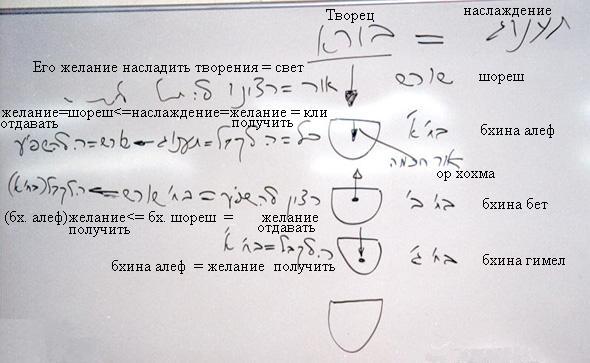 Творец наслаждение
בורא = תענוג
Его желание насладить творения = свет
שורש אור = רצונו
шореш
желание=шореш<=наслаждение=желание = кли
отдавать получить
בח' א'
бхина алеф
לקבל = תענוג שורש = להשפיע
אור חכמה
ор хохма
רצון להשפיע = בח' שורש לקבל (בח' א')
בח' ב'
бхина бет
(бх. алеф)желание<= бх. шореш = желание
получить отдавать
לקבל = בח' א'
בח' ג'
бхина гимел
бхина алеф = желание получить